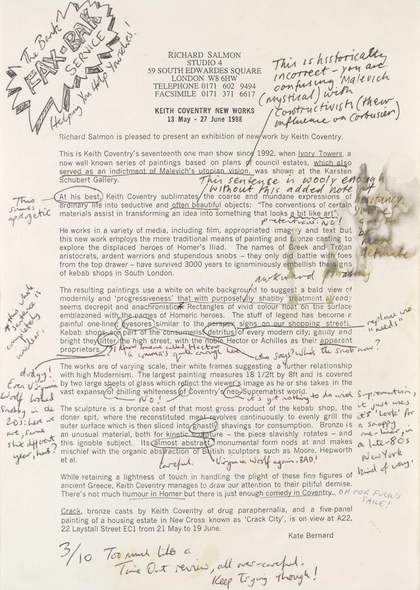 The Bantu!
FAX-BAK
SERVICE
Helping You Help Yourselves!
RICHARD SALMON
STUDIO 4
59 SOUTH EDWARDES SQUARE
LONDON W8 6HW
TELEPHONE 0171 602 9494
FACSIMILE 0171 371 6617
KEITH COVENTRY NEW WORKS
13 May - 27 June 1998
This is historically
incorrect - you are
confusing Malevich
(mystical) with
Constructivists (their
influence on Corbusier)
Richard Salmon is pleased to present an exhibition of new work by Keith Coventry.
This is Keith Coventry's seventeenth one man show since 1992, when Ivory Towers, a
now well known series of paintings based on plans of council estates, which also
served as an indictment of Malevich's utopian vision, was shown at the Karsten
Schubert Gallery.
This sentence is woolly enough
without this added note of
This
sounds
apologetic
At his best, Keith Coventry sublimates the coarse and mundane expressions of
ordinary life into seductive and often beautiful objects: "The conventions of certain
materials assist in transforming an idea into something that looks a bit like art".
pretentious. NO!
He works in a variety of media, including film, appropriated imagery and text but
this new work employs the more traditional means of painting and bronze casting to
explore the displaced heroes of Homer's Iliad. The names of Greek and Trojan
aristocrats, ardent warriors and stupendous snobs – they only did battle with foes
from the top drawer – have survived 3000 years to ignominiously embellish the signs
of kebab shops in South London.
awkward
The resulting paintings use a white on white background to suggest a bald view of
modernity and 'progressiveness' that with purposefully shabby treatment now
seems decrepit and anachronistic. Rectangles of vivid colour float on the surface
emblazoned with the names of Homeric heroes. The stuff of legend has become a
painful one-liner, eyesores similar to the perspex signs on our shopping streets.
Kebab shops are part of the consumerist detritus of every modern city; gaudy and
bright they litter the high street, with the noble Hector or Achilles as their apparent
proprietors.
replace w
"needs"
who says? Who's the snob now?
dodgy!
The works are of varying scale, their white frames suggesting a further relationship
with high Modernism. The largest painting measures 18 1/2ft by 8ft and is covered
by two large sheets of glass which reflect the viewer's image as he or she takes in the
vast expanse of chilling whiteness of Coventry's neo-Suprematist world.
NO!
it's got nothing to do with
The sculpture is a bronze cast of that most gross product of the kebab shop, the
doner spit, where the reconstituted meat revolves continuously to evenly grill the
outer surface which is then sliced into ghastly shavings for consumption. Bronze is
an unusual material, both for kinetic sculpture – the piece slavishly rotates – and
this ignoble subject. Its almost abstract, monumental form nods at and makes
mischief with the organic abstraction of British sculptors such as Moore, Hepworth
et al.
Careful. Virginia Woolf again. BAD!
While retaining a lightness of touch in handling the plight of these fine figures of
ancient Greece, Keith Coventry manages to draw our attention to their pitiful demise.
There's not much humour in Homer but there is just enough comedy in Coventry.
OH FOR FUCK'S
SAKE!
Crack, bronze casts by Keith Coventry of drug paraphernalia, and a five-panel
painting of a housing estate in New Cross known as 'Crack City', is on view at A22,
22 Laystall Street EC1 from 21 May to 19 June.
Kate Bernard
3/10 Too much like a
Time Out review, all over-careful.
Keep trying though!